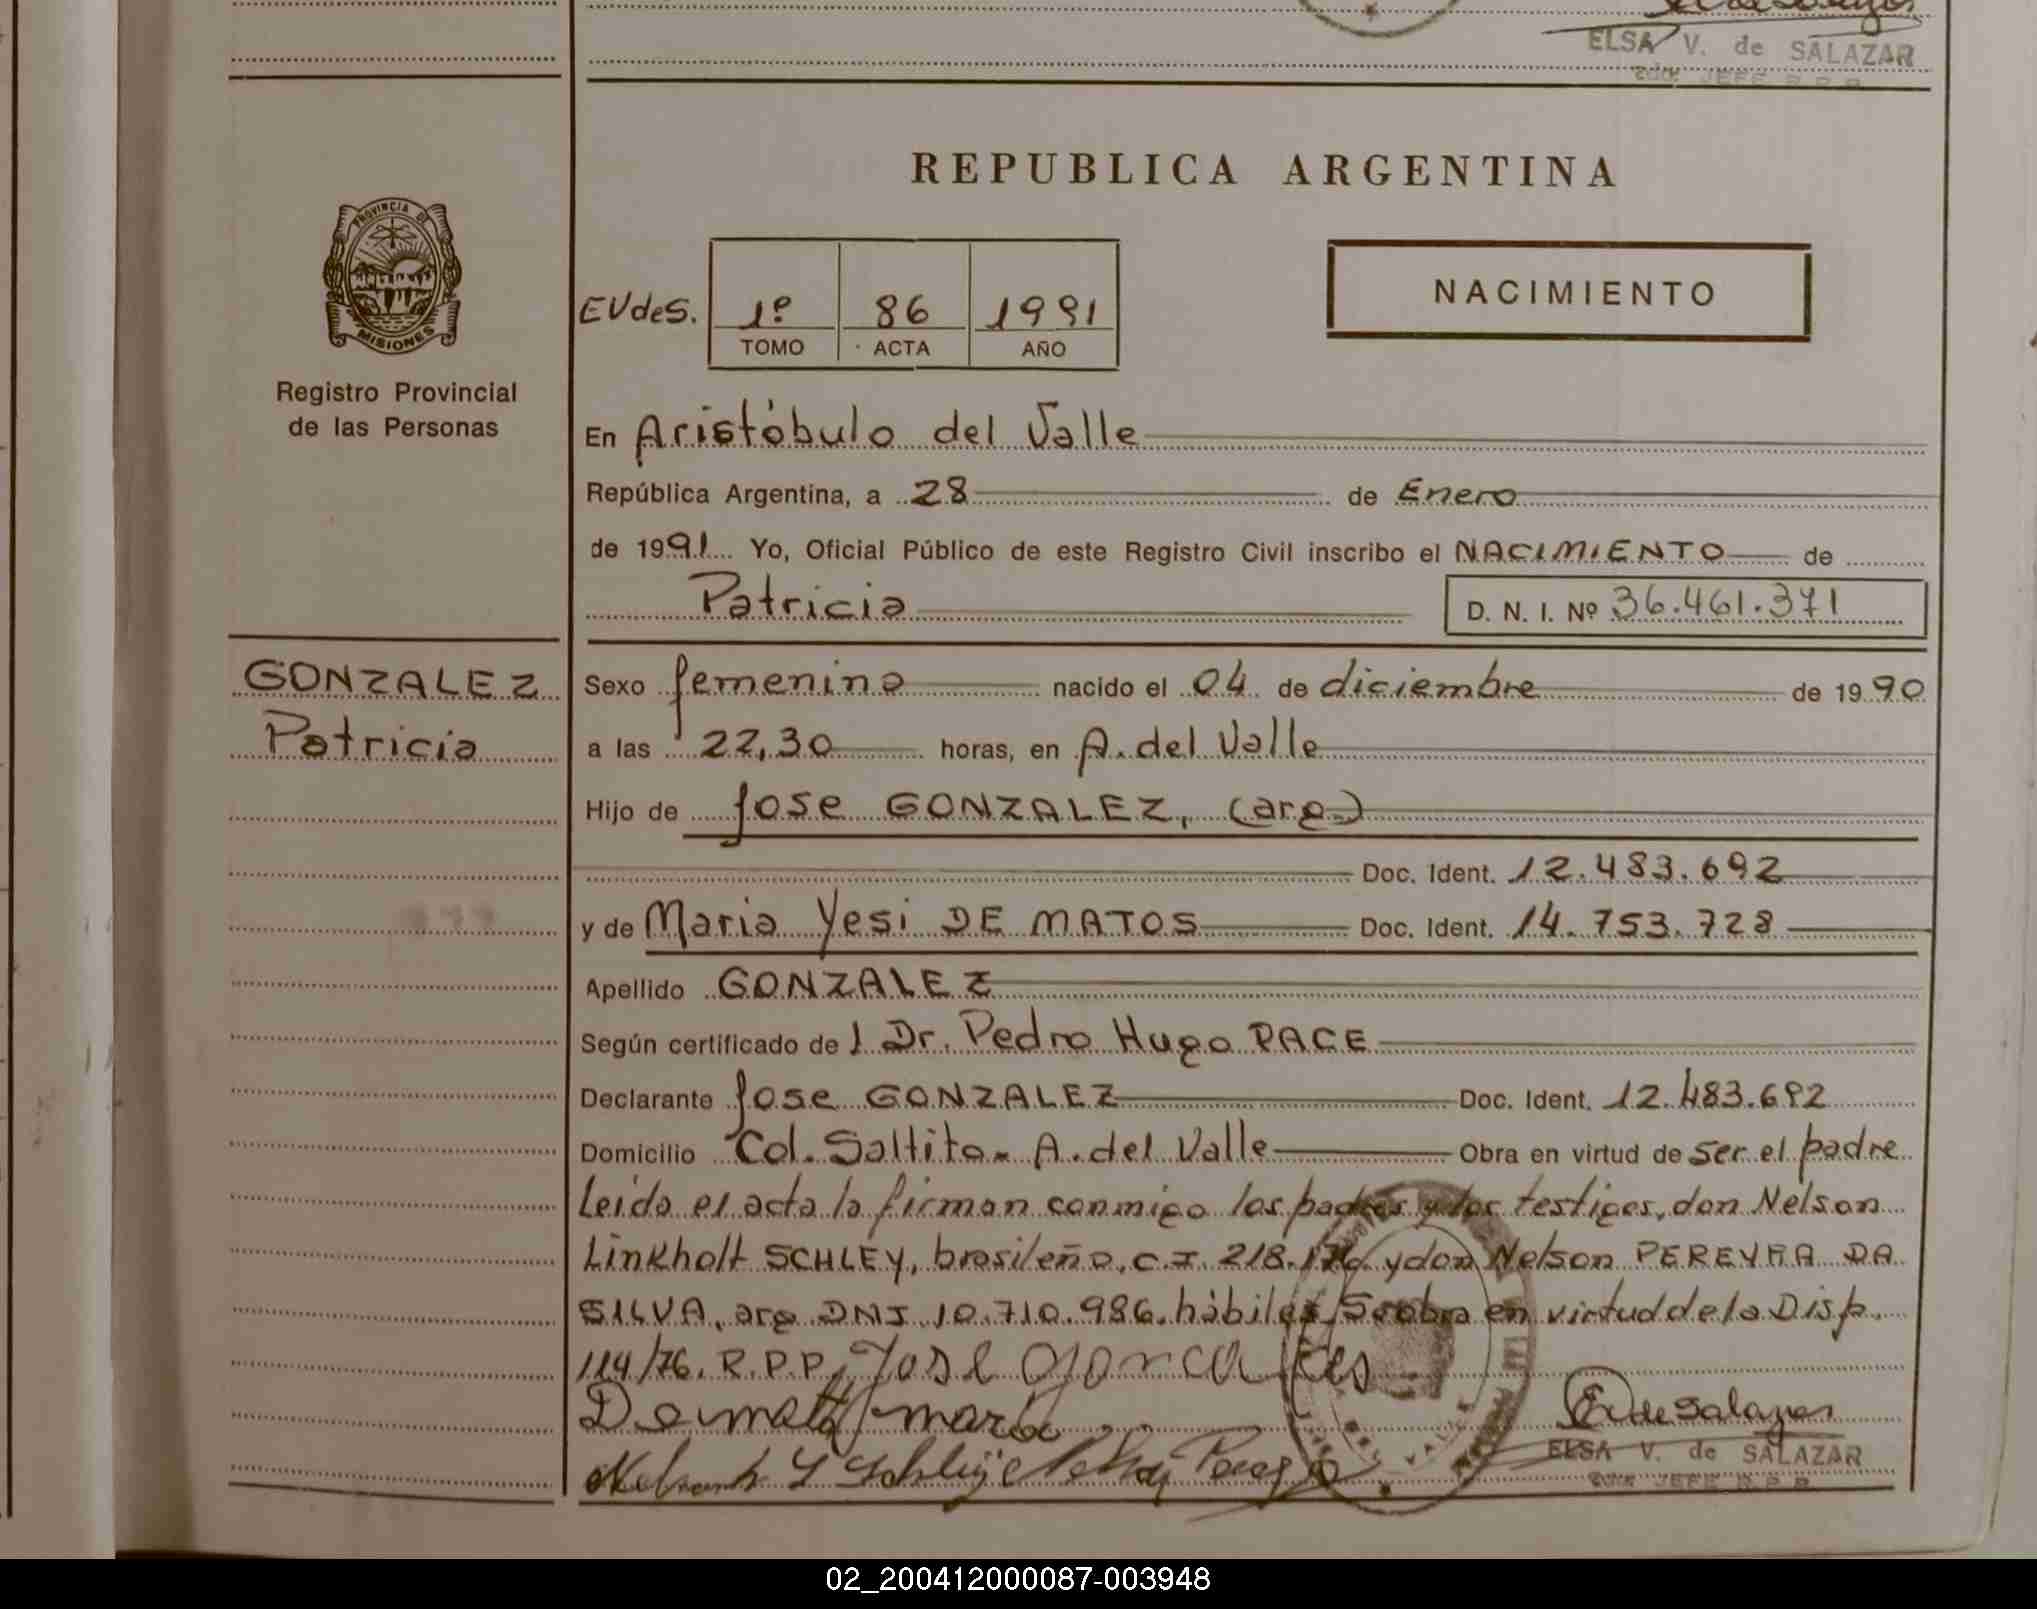 ELSA V. de SALAZAR
REPUBLICA ARGENTINA
PROVINCIA DE
MISIONES
Registro Provincial
de las Personas
EVdeS. 1º 86 1991
TOMO ACTA AÑO
NACIMIENTO
En Aristóbulo del Valle
República Argentina, a 28 de Enero
de 1991 Yo, Oficial Público de este Registro Civil inscribo el NACIMIENTO de
Patricia D. N. I. Nº 36.461.371
GONZALEZ
Patricia
Sexo femenino nacido el 04 de diciembre de 1990
a las 22,30 horas, en A. del Valle
Hijo de Jose GONZALEZ, (arg.)
Doc. Ident. 12.483.692
y de Maria Yesi DE MATOS Doc. Ident. 14.753.728
Apellido GONZALEZ
Según certificado de l Dr. Pedro Hugo PACE
Declarante Jose GONZALEZ Doc. Ident. 12.483.692
Domicilio Col. Saltito - A. del Valle Obra en virtud de ser el padre
Leida el acta la firman conmigo los padres y los testigos, don Nelson
Linkholt SCHLEY, brasileño, C.I. 218.176 y don Nelson PEREYRA DA
SILVA, arg DNI 10.710.986. hábiles Se obra en virtud de la Disp.
114/76. R.P.P. José
De matos maria
EV de Salazar
ELSA V. de SALAZAR
JEFE R.P.P.
02_200412000087-003948